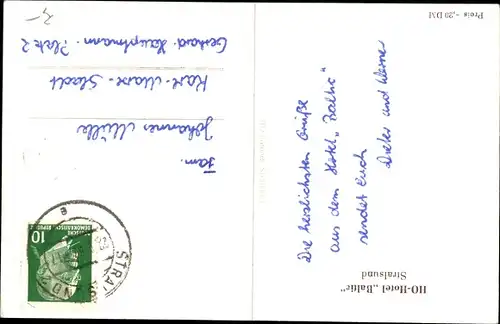 HO-Hotel „Baltic"
Stralsund
Die herzlichsten Grüße
aus dem Hotel „Baltic"
sendet Euch
Dieter und Werner
Preis -,20 DM
3,-
STRALSUND
e
10
DEUTSCHE
DEMOKRATISCHE REPUBLIK
Fam.
Johannes Müller
Karl-Marx-Stadt
Gerhard-Hauptmann-Platz 2